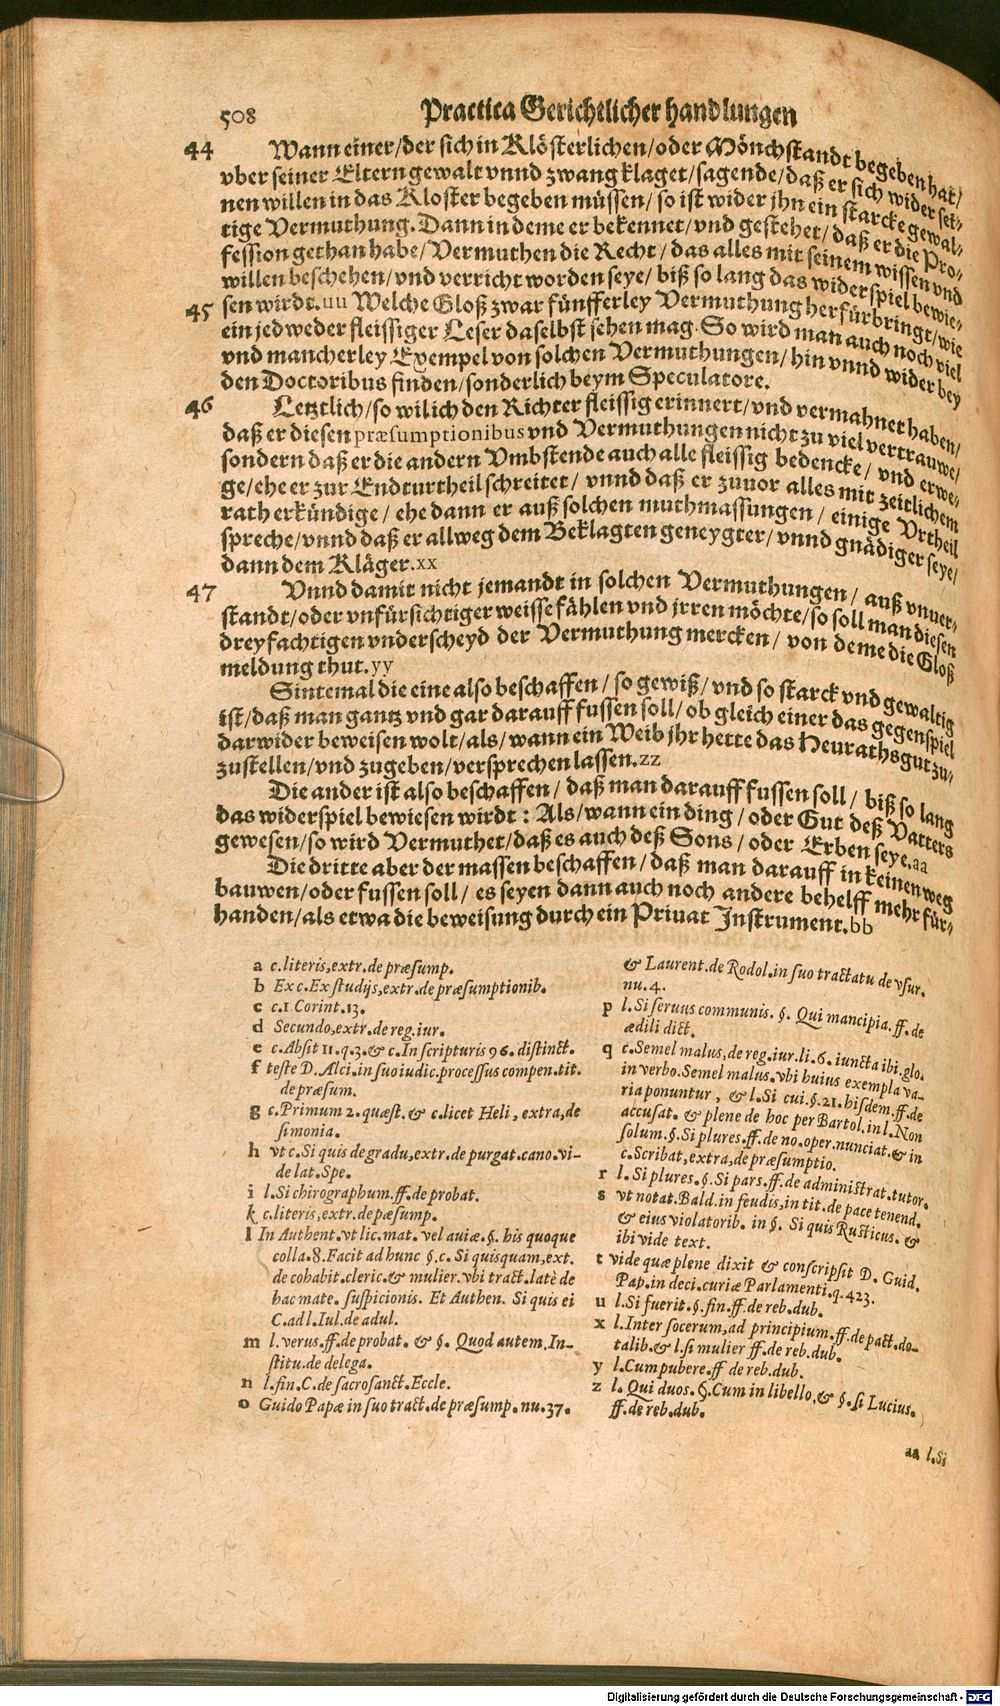 508
Practica Gerichtlicher handlungen
44 Wann einer/der sich in Klösterlichen/oder Mönchstandt begeben hat/
vber seiner Eltern gewalt vnnd zwang klaget/sagende/daß er sich wider set-
nen willen in das Kloster begeben müssen/ so ist wider jhn ein starcke gewal-
tige Vermuthung. Dann in deme er bekennet/vnd gestehet/ daß er die Pro-
fession gethan habe/ Vermuthen die Recht/ das alles mit seinem wissen vnd
willen beschehen/vnd verricht worden seye/ biß so lang das widerspiel bewie-
45 sen wirdt.uu Welche Gloß zwar fünfferley Vermuthung herfürbringt/wie
ein jedweder fleissiger Leser daselbst sehen mag. So wird man auch noch viel
vnd mancherley Exempel von solchen Vermuthungen/ hin vnnd wider bey
den Doctoribus finden/sonderlich beym Speculatore.
46 Letztlich/so wil ich den Richter fleissig erinnert/vnd vermahnet haben/
daß er diesen præsumptionibus vnd Vermuthungen nicht zu viel vertrauwe/
sondern daß er die andern Vmbstende auch alle fleissig bedencke/ vnd erwe-
ge/ehe er zur Endturtheil schreitet/ vnnd daß er zuuor alles mit zeitlichem
rath erkündige/ ehe dann er auß solchen muthmassungen/ einige Vrtheil
spreche/vnnd daß er allweg dem Beklagten geneygter/vnnd gnädiger seye/
dann dem Kläger.xx
47 Vnnd damit nicht jemandt in solchen Vermuthungen/ auß vnuer-
standt/oder vnfürsichtiger weisse fählen vnd jrren möchte/so soll man diesen
dreyfachtigen vnderscheyd der Vermuthung mercken/ von deme die Gloß
meldung thut.yy
Sintemal die eine also beschaffen/ so gewiß/vnd so starck vnd gewaltig
ist/daß man gantz vnd gar darauff fussen soll/ ob gleich einer das gegenspiel
darwider beweisen wolt/als/wann ein Weib jhr hette das Heurathsgut zu-
zustellen/vnd zugeben/versprechen lassen.zz
Die ander ist also beschaffen/ daß man darauff fussen soll/ biß so lang
das widerspiel bewiesen wirdt: Als/wann ein ding/oder Gut deß Vatters
gewesen/so wird Vermuthet/daß es auch deß Sons/oder Erben seye.aa
Die dritte aber der massen beschaffen/ daß man darauff in keinen weg
bauwen/oder fussen soll/ es seyen dann auch noch andere behelff mehr für-
handen/als etwa die beweisung durch ein Priuat Instrument.bb
a c.literis,extr.de præsump.
b Ex c.Ex studijs,extr.de præsumptionib.
c c.1 Corint.13.
d Secundo,extr.de reg.iur.
e c.Absit 11.q.3.& c.In scripturis 96.distinct.
f teste D.Alci.in suo iudic.processus compen.tit.
de præsum.
g c.Primum 2.quæst.& c.licet Heli, extra,de
simonia.
h vt c.Si quis de gradu,extr.de purgat.cano.vi-
de lat.Spe.
i l.Si chirographum.ff.de probat.
k c.literis,extr.de pæsump.
l In Authent.vt lic.mat. vel auiæ.§. his quoque
colla.8.Facit ad hunc §.c. Si quisquam,ext.
de cohabit.cleric.& mulier.vbi tract.latè de
hac mate. suspicionis. Et Authen. Si quis ei
C.ad l.Iul.de adul.
m l.verus.ff.de probat. & §. Quod autem.In-
stitu.de delega.
n l.fin.C.de sacrosanct.Eccle.
o Guido Papæ in suo tract.de præsump.nu.37.
& Laurent.de Rodol.in suo tractatu de vsur.
nu.4.
p l.Si seruus communis. §. Qui mancipia.ff.de
ædili dict.
q c.Semel malus,de reg.iur.li.6.iuncta ibi.glo.
in verbo.Semel malus.vbi huius exempla va-
ria ponuntur, & l.Si cui.§.21.hisdem.ff.de
accusat. & plene de hoc per Bartol.in l.Non
solum.§.Si plures.ff.de no.oper.nunciat.& in
c.Scribat,extra,de præsumptio.
r l.Si plures.§.Si pars.ff.de administrat.tutor.
s vt notat.Bald.in feudis,in tit.de pace tenend.
& eius violatorib. in §. Si quis Rusticus. &
ibi vide text.
t vide quæ plene dixit & conscripsit D. Guid.
Pap.in deci.curiæ Parlamenti.q.423.
u l.Si fuerit.§.fin.ff.de reb.dub.
x l.Inter socerum,ad principium.ff.de pact.do-
talib.& l.si mulier ff.de reb.dub.
y l.Cum pubere.ff de reb.dub.
z l. Qui duos. §.Cum in libello,& §.si Lucius.
ff.de reb.dub.
aa l.Si
Digitalisierung gefördert durch die Deutsche Forschungsgemeinschaft - DFG